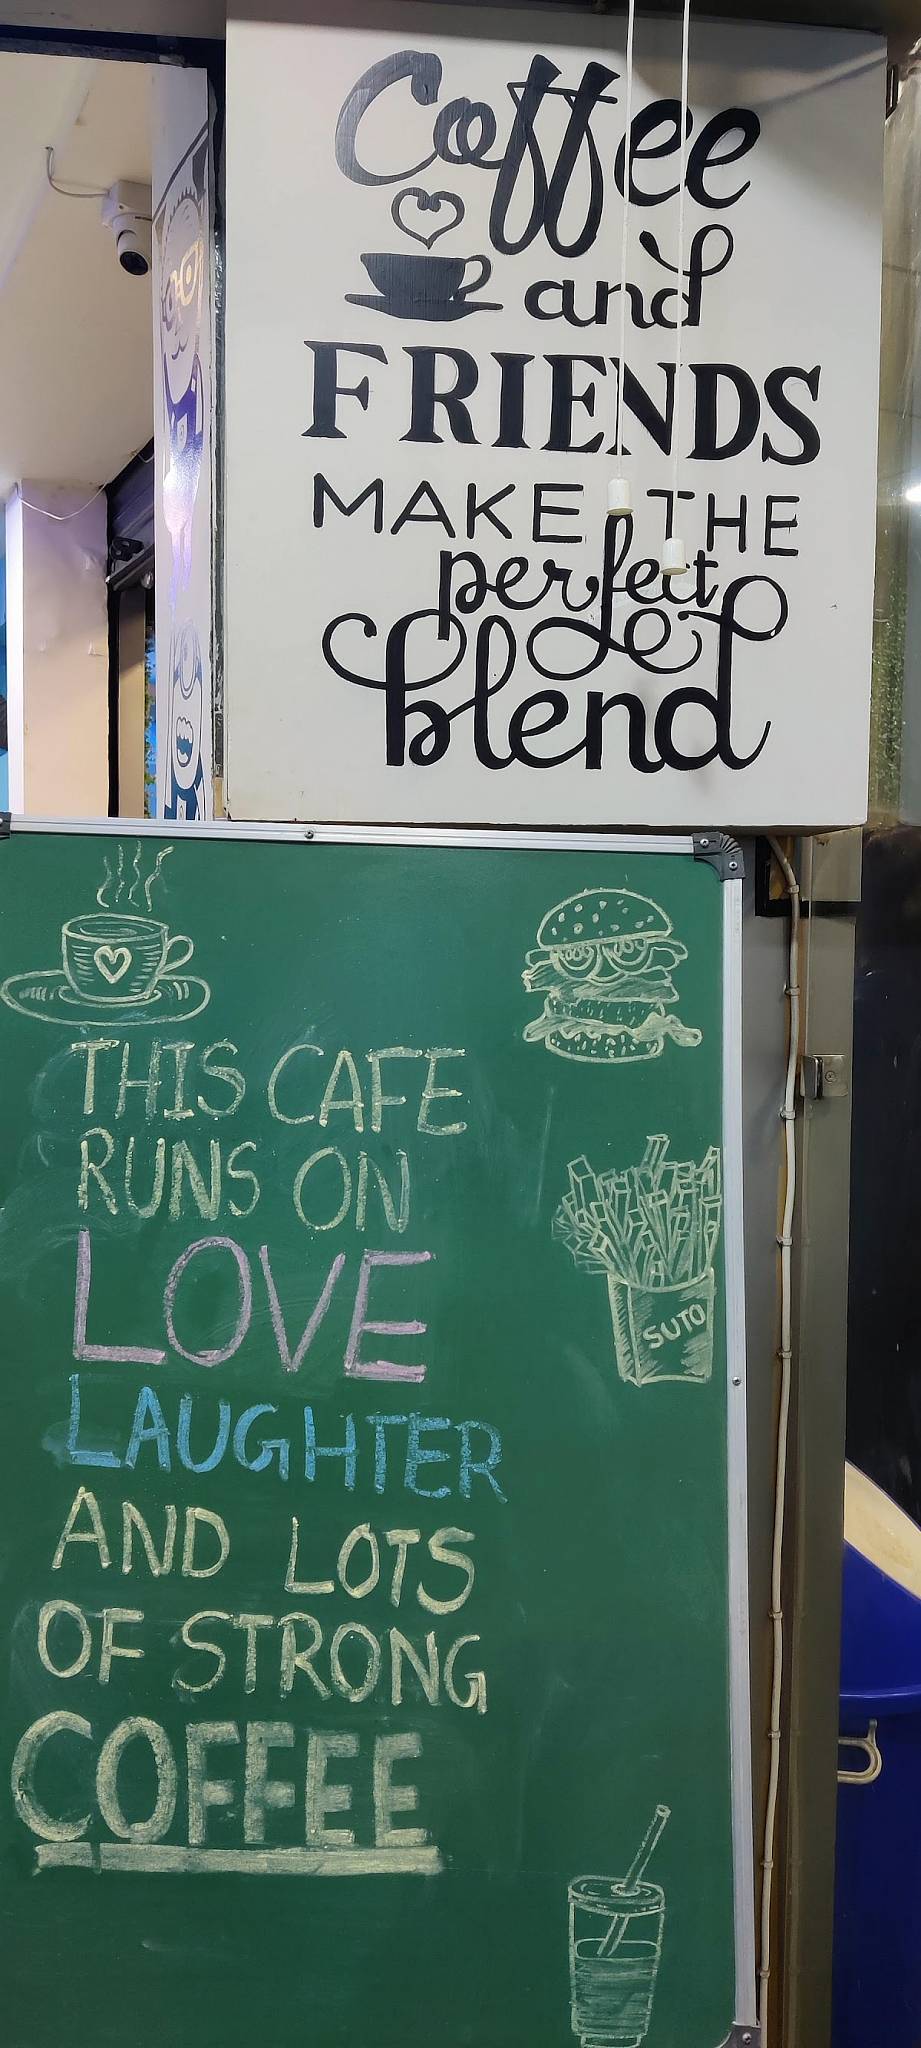 Coffee
and
FRIENDS
MAKE THE
perfect
blend
THIS CAFE
RUNS ON
LOVE
LAUGHTER
AND LOTS
OF STRONG
COFFEE
SUTO